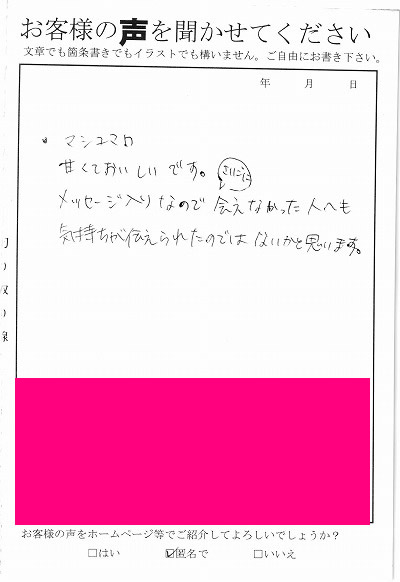 お客様の声を聞かせてください
文章でも箇条書きでもイラストでも構いません。ご自由にお書き下さい。
年 月 日
・マシュマロ
甘くておいしいです。
さいごに
メッセージ入りなので会えなかった人へも
気持ちが伝えられたのではないかと思います。
お客様の声をホームページ等でご紹介してよろしいでしょうか？
□はい ☑匿名で □いいえ